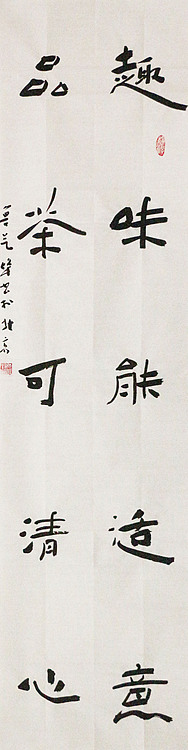 趣味能适意
品茶可清心
北京